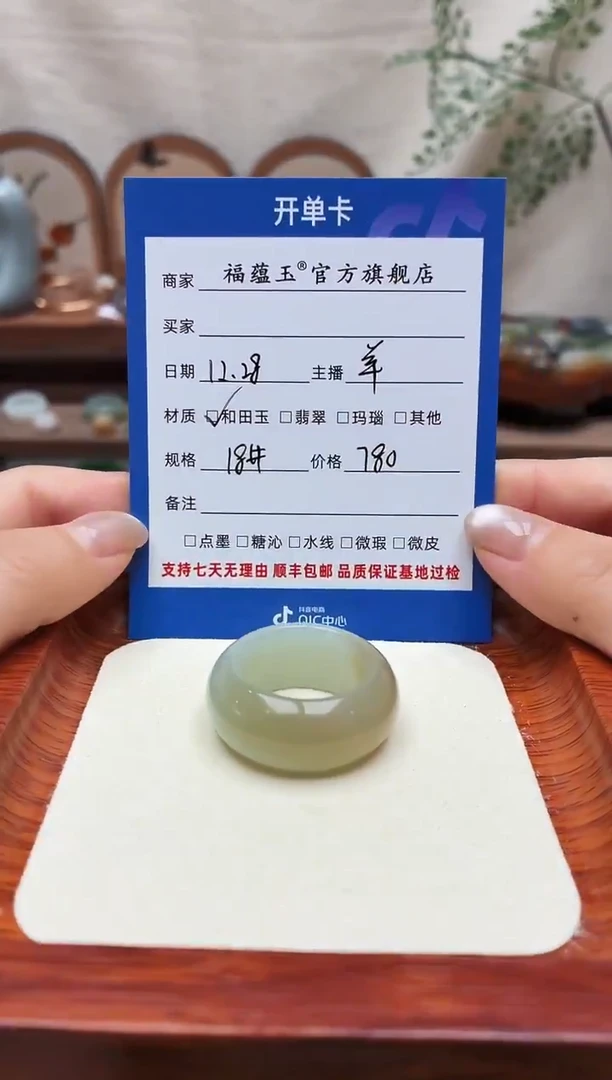 开单卡
商家 福蕴玉®官方旗舰店
买家
日期 12.28 主播 羊
材质 ☑和田玉 □翡翠 □玛瑙 □其他
规格 18# 价格 780
备注
□点墨 □糖沁 □水线 □微瑕 □微皮
支持七天无理由 顺丰包邮 品质保证基地过检
抖音电商
QIC中心